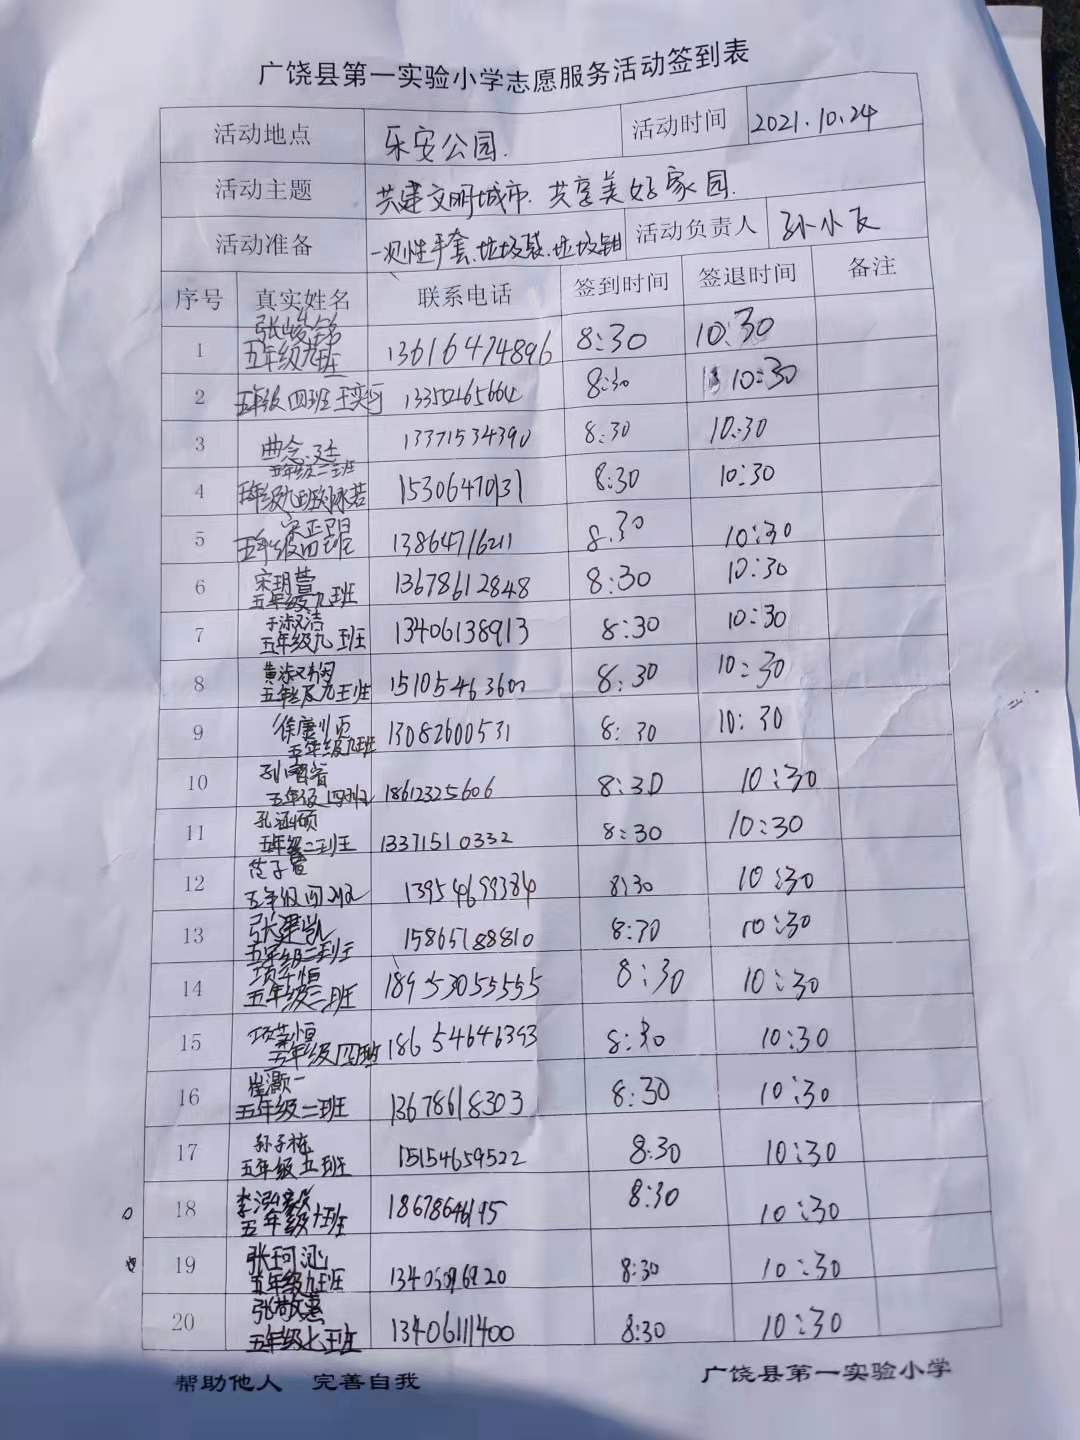 广饶县第一实验小学志愿服务活动签到表
活动地点 乐安公园. 活动时间 2021.10.24
活动主题 共建文明城市.共享美好家园.
活动准备 一次性手套.垃圾袋.垃圾钳 活动负责人 孙小友
序号 真实姓名 联系电话 签到时间 签退时间 备注
张峻铭
1 五年级九班 13616474896 8:30 10:30
2 五年级四班王奕 8:30 10:30
3 曲念 13371534390 8:30 10:30
五年级二班
4 五年级九班 15306470131 8:30 10:30
宋正
5 五年级四班 13864716211 8:30 10:30
6 宋玥萱 13678612848 8:30 10:30
五年级九班
于淑洁
7 五年级九班 13406138913 8:30 10:30
黄淑
8 五年级九班 15105463600 8:30 10:30
9 徐康顺 13082600531 8:30 10:30
五年级九班
10 五年级四班 18612325606 8:30 10:30
孔涵硕
11 五年级二班 13371510332 8:30 10:30
子萱
12 五年级四班 13954699384 8:30 10:30
13 张珺凯 15865188810 8:30 10:30
五年级二班
项子恒
14 五年级三班 18953055555 8:30 10:30
项荣恒
15 五年级四班 18654646393 8:30 10:30
崔灏一
16 五年级二班 13678618303 8:30 10:30
孙子栋
17 五年级五班 15154659522 8:30 10:30
李泓毅
18 五年级十班 18678646195 8:30 10:30
张珂涵
19 五年级九班 8:30 10:30
张敬惠
20 五年级七班 13406111400 8:30 10:30
帮助他人 完善自我 广饶县第一实验小学